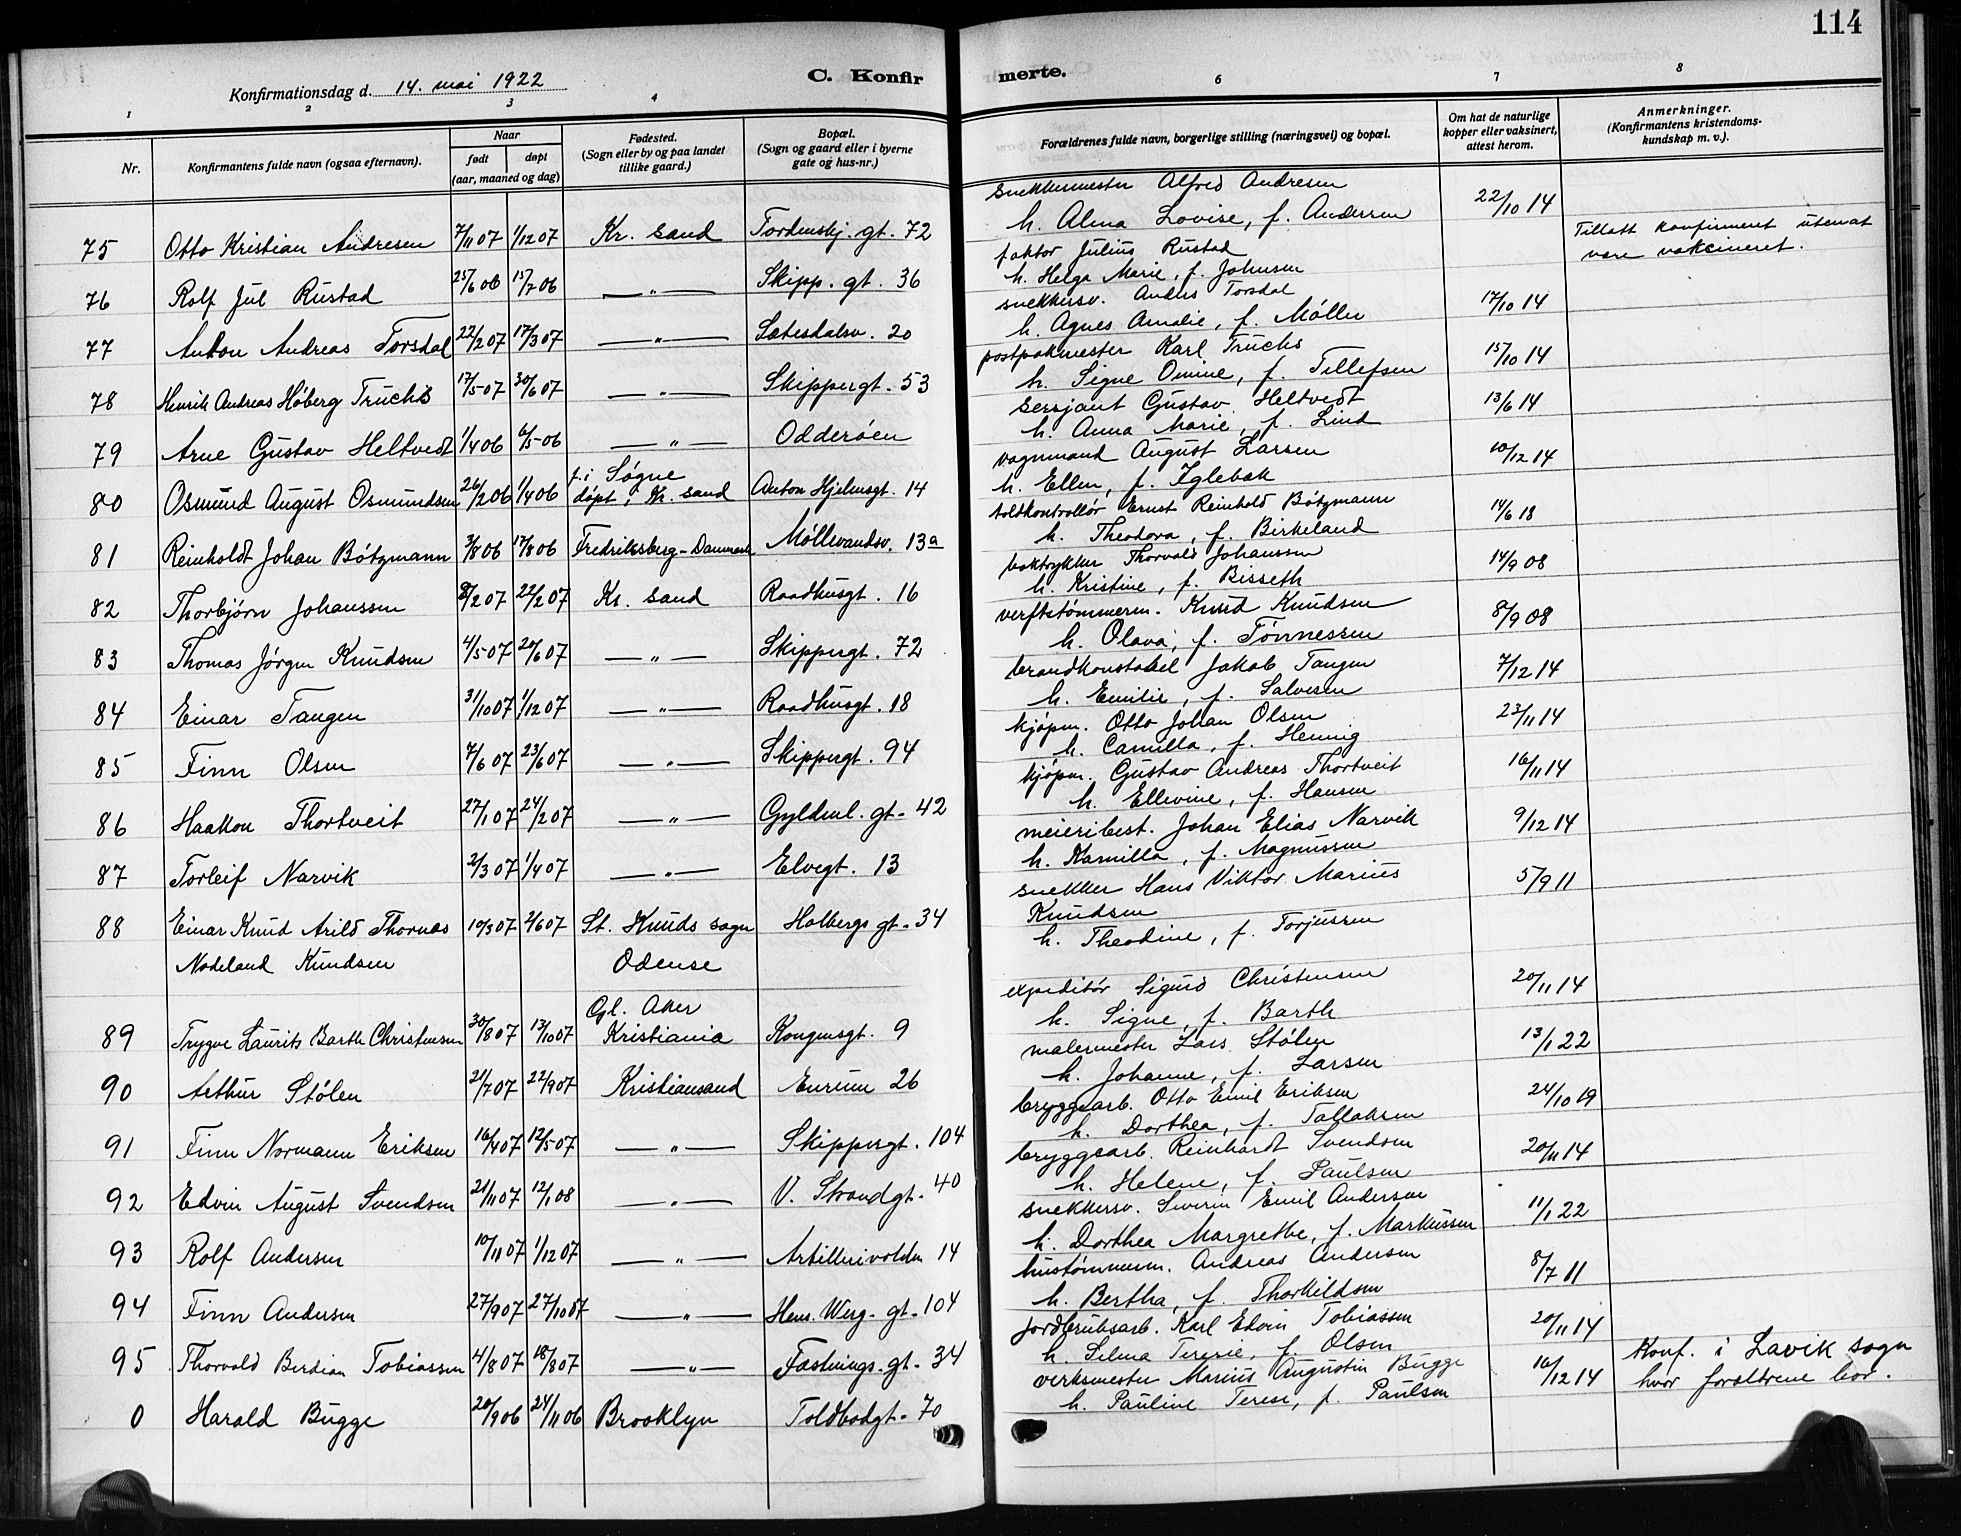 114
Konfirmationsdag d. 14. mai 1922
C. Konfir
merte.
1 2 3 4 6 7 8
Nr.
Konfirmantens fulde navn (ogsaa efternavn).
Naar
født døpt
(aar, maaned og dag)
Fødested.
(Sogn eller by og paa landet
tillike gaard.)
Bopæl.
(Sogn og gaard eller i byerne
gate og hus-nr.)
Forældrenes fulde navn, borgerlige stilling (næringsvei) og bopæl.
Om hat de naturlige
kopper eller vaksinert,
attest herom.
Anmerkninger.
(Konfirmantens kristendoms-
kundskap m. v.).
75 Otto Kristian Andresen 7/11 07 1/12 07 Kr. sand Tordenskj. gt. 72
snekkermester Alfred Andresen 22/10 14
h. Alma Lovise, f. Andersen
76 Rolf Jul Rustad 25/6 06 15/7 06 —„— Skipp. gt. 36
faktor Julius Rustad Tillatt konfirmert uten at
h. Helga Marie, f. Johnsen være vaksineret.
77 Anton Andreas Torsdal 22/2 07 17/3 07 —„— Sætesdalsv. 20
snekkersv. Anders Torsdal 17/10 14
h. Agnes Amalie, f. Møller
78 Henrik Andreas Høberg Truchs 17/5 07 30/6 07 —„— Skippergt. 53
postpakmester Karl Truchs 15/10 14
h. Signe Omine, f. Tellefsen
79 Arne Gustav Heltvedt 1/4 06 6/5 06 —„— Odderøen
Sersjant Gustav Heltvedt 13/6 14
h. Anna Marie, f. Lind
80 Osmund August Osmundsen 26/2 06 1/4 06 f. i Søgne
døpt i Kr. sand Anton Hjelmsgt. 14
vognmand August Larsen 10/12 14
h. Ellen, f. Iglebæk
81 Reinholdt Johan Bøtzmann 3/8 06 17/8 06 Fredriksberg - Danmark Møllevandsv. 13a
toldkontrollør Ernst Reinhold Bøtzmann 14/6 18
h. Theodora, f. Birkeland
82 Thorbjørn Johanssen 8/2 07 22/2 07 Kr. sand Raadhusgt. 16
boktrykker Thorvald Johanssen 14/9 08
h. Kristine, f. Bisseth
83 Thomas Jørgen Knudsen 4/5 07 20/6 07 —„— Skippergt. 72
verftstømmerm. Knud Knudsen 8/9 08
h. Olava, f. Tønnessen
84 Einar Tangen 31/10 07 1/12 07 —„— Raadhusgt. 18
brandkonstabel Jakob Tangen 7/12 14
h. Emilie, f. Salvesen
85 Finn Olsen 7/6 07 23/6 07 —„— Skippergt. 94
kjøpm. Otto Johan Olsen 23/11 14
h. Camilla, f. Henning
86 Haakon Thortveit 27/1 07 24/2 07 —„— Gyldenl. gt. 42
kjøpm. Gustav Andreas Thortveit 16/11 14
h. Ellevine, f. Hansen
87 Torleif Narvik 2/3 07 1/4 07 —„— Elvegt. 13
meieribest. Johan Elias Narvik 9/12 14
h. Kamilla, f. Magnussen
88 Einar Knud Arild Thornæs 10/3 07 2/6 07 St. Knuds sogn Holbergs gt. 34
Nodeland Knudsen Odense
snekker Hans Viktor Marius 5/9 11
Knudsen
h. Theodine, f. Torjussen
Gl. Aker
89 Trygve Laurits Barth Christensen 30/8 07 13/10 07 Kristiania Kongensgt. 9
expeditør Sigurd Christensen 20/11 14
h. Signe, f. Barth
90 Arthur Stølen 21/7 07 22/9 07 Kristiansand Enrum 26
malermester Lars Stølen 13/1 22
h. Johanne, f. Larsen
91 Finn Normann Eriksen 16/4 07 12/5 07 —„— Skippergt. 104
bryggearb. Otto Emil Eriksen 24/10 19
h. Dorthea, f. Tallaksen
92 Edvin August Svendsen 21/11 07 12/1 08 —„— V. Strandgt. 40
bryggearb. Reinhardt Svendsen 20/11 14
h. Helene, f. Paulsen
93 Rolf Andersen 10/11 07 1/12 07 —„— Artillerivolden 14
snekkersv. Severin Emil Andersen 11/1 22
h. Dorthea Margrethe, f. Markussen
94 Finn Andersen 27/9 07 27/10 07 —„— Henr. Werg. gt. 104
hustømmerm. Andreas Andersen 8/7 11
h. Bertha, f. Thorkildsen
95 Thorvald Berdian Tobiassen 4/8 07 18/8 07 —„— Fæstnings. gt. 34
jordbruksarb. Karl Edvin Tobiassen 20/11 14
h. Selma Teresie, f. Olsen
0 Harald Bugge 20/9 06 24/11 06 Brooklyn Toldbodgt. 70
verksmester Marius Augustin Bugge 16/12 14 Konf. i Lavik sogn
h. Pauline Terese, f. Paulsen hvor forældrene bor.